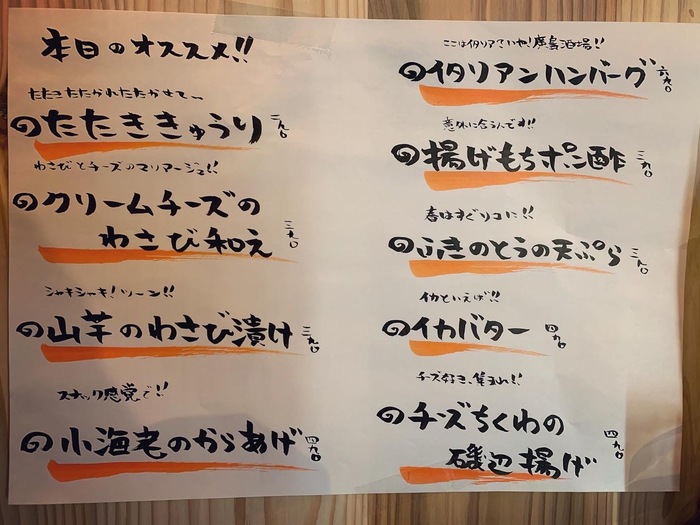 本日のオススメ!!
たたきたたかれたたかせて〜
のたたききゅうり 二九〇
わさびとチーズのマリアージュ!!
のクリームチーズの
わさび和え 三九〇
シャキシャキ!ツーン!!
の山芋のわさび漬け 三九〇
スナック感覚で!!
の小海老のからあげ 四九〇
ここはイタリアでいや!廣島酒場!!
のイタリアンハンバーグ 六九〇
意外に合うんです!!
の揚げもちポン酢 三九〇
春はすぐソコに!!
のふきのとうの天ぷら 三九〇
イカといえば!!
のイカバター 四九〇
チーズ好き、集まれ!!
のチーズちくわの
磯辺揚げ 四九〇